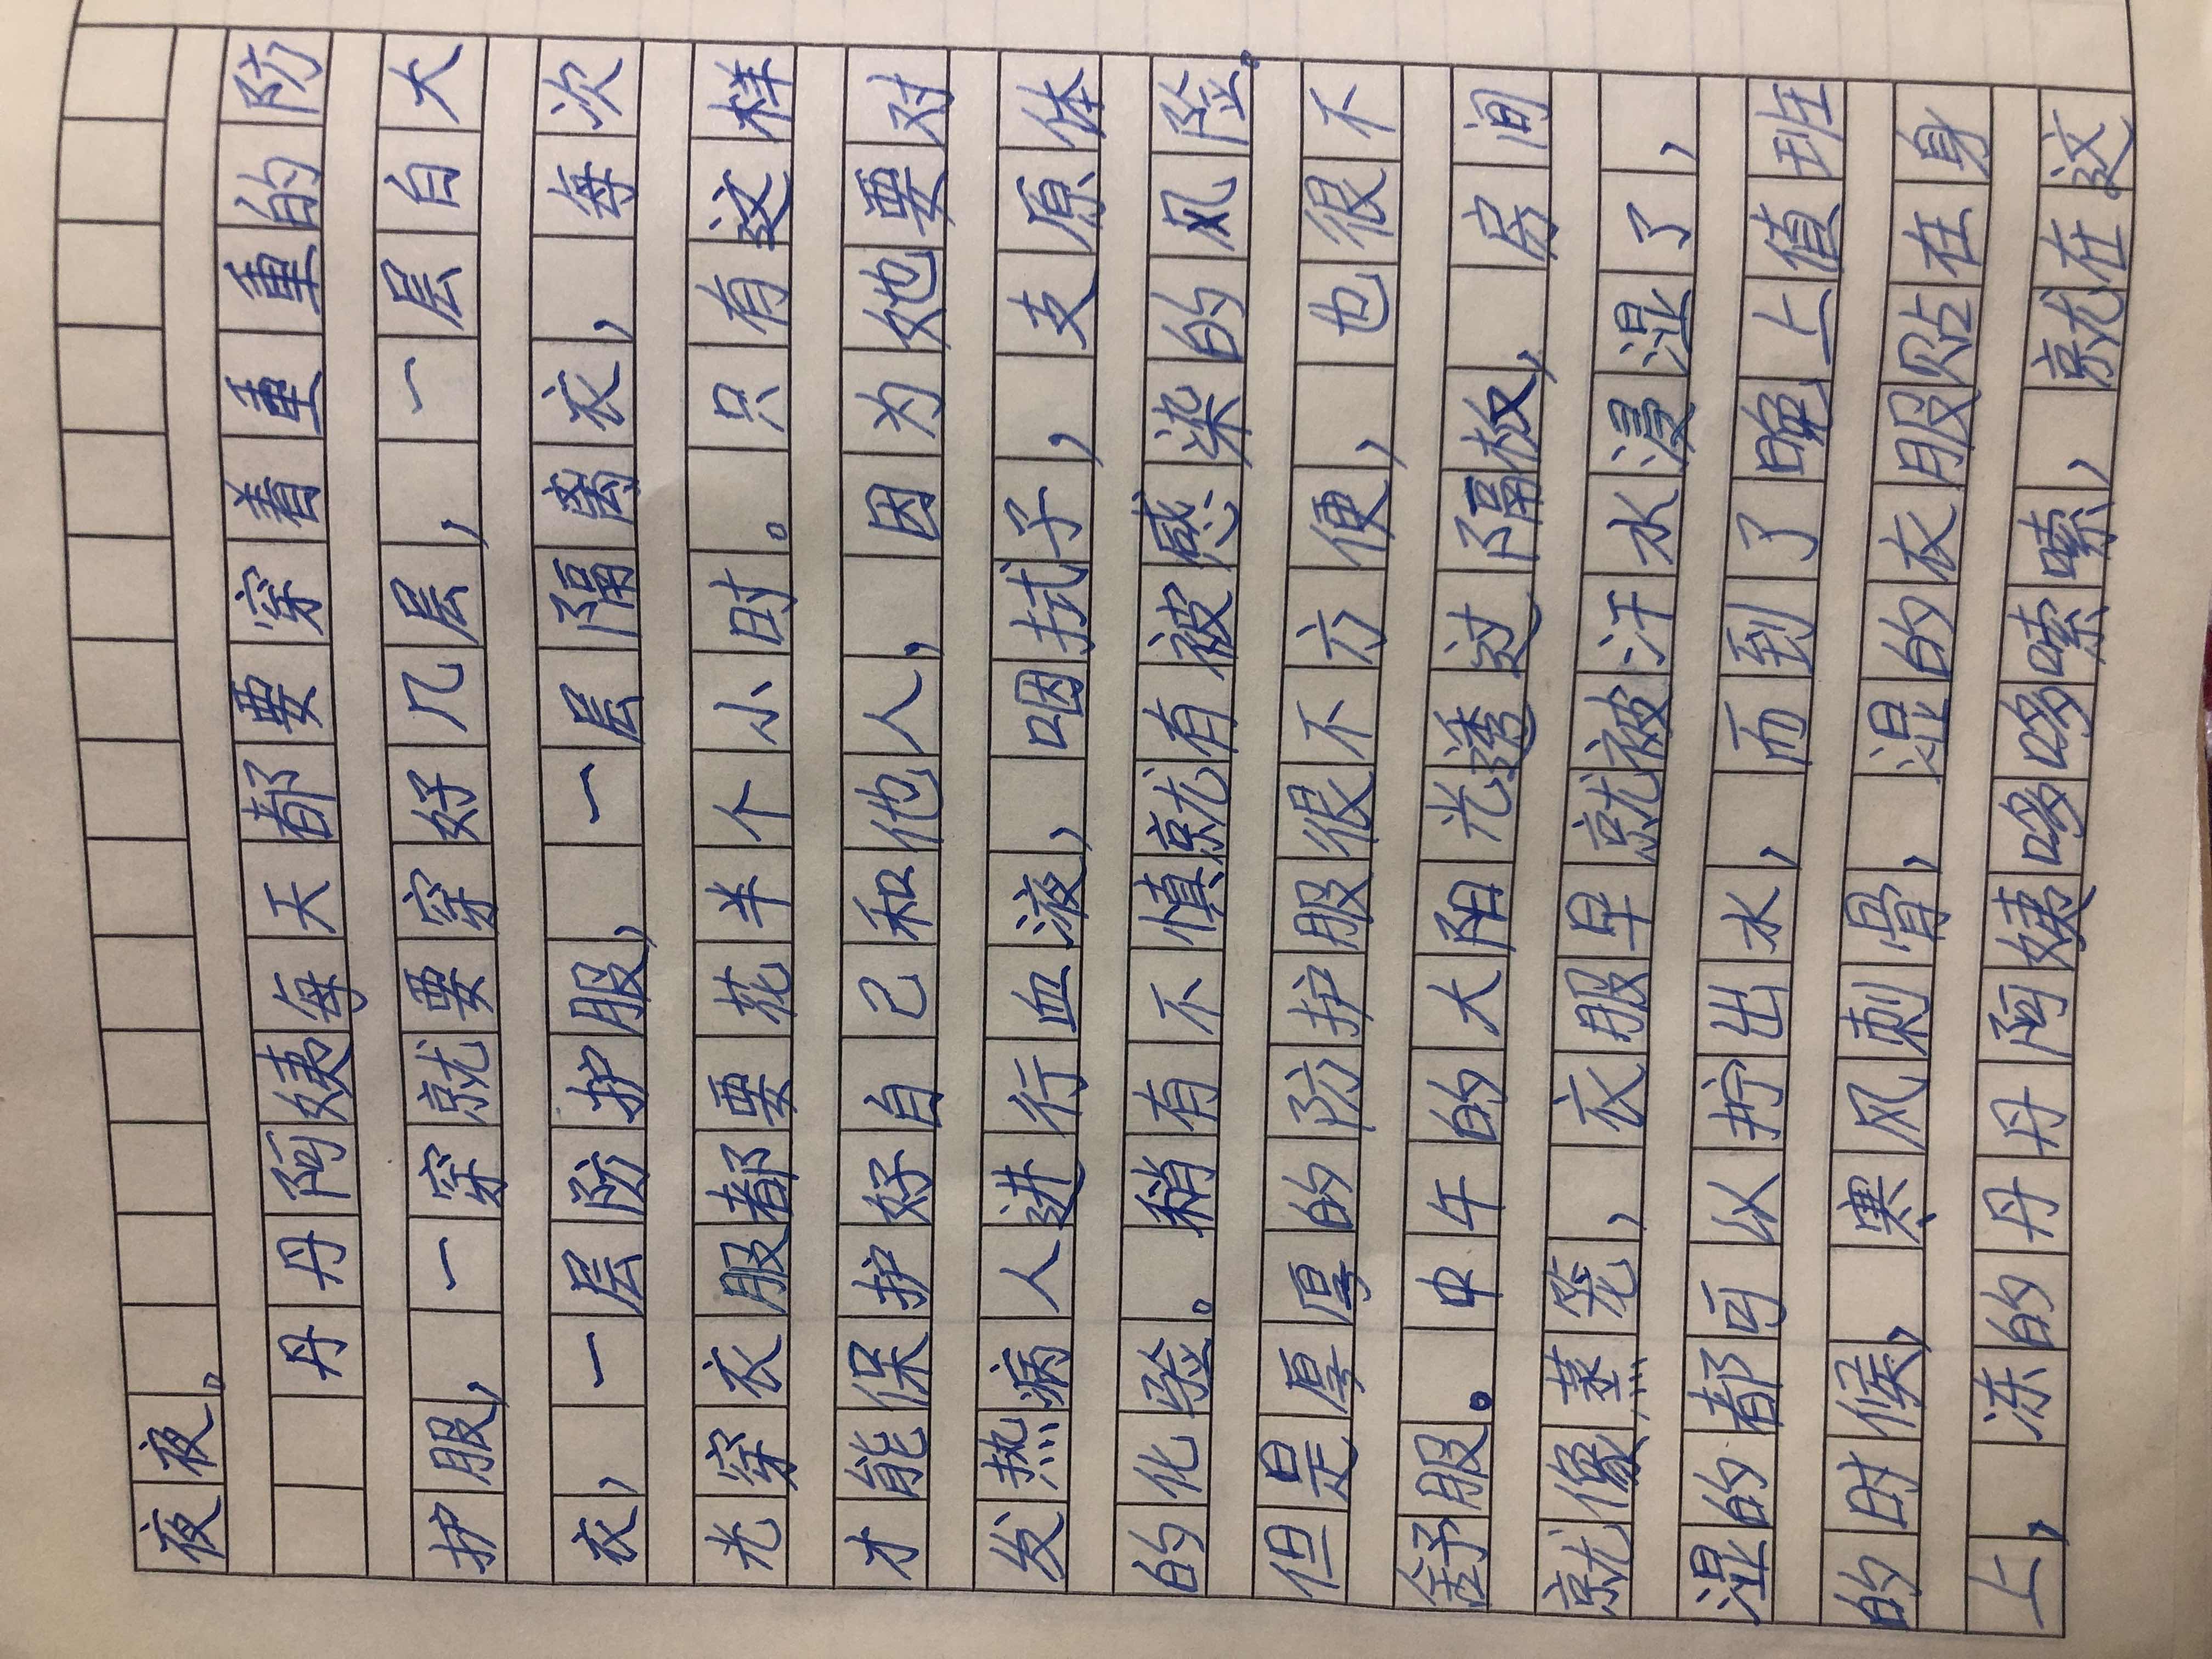 夜夜。
丹丹阿姨每天都要穿着重重的防
护服，一穿就要穿好几层，一层白大
衣，一层防护服，一层隔离衣，每次
光穿衣服都要花半个小时。只有这样
才能保护好自己和他人，因为她要对
发热病人进行血液，咽拭子，支原体
的化验。稍有不慎就有被感染的风险。
但是厚厚的防护服很不方便，也很不
舒服。中午的大阳光透过隔板，房间
就像蒸笼，衣服早就被汗水浸湿了，
湿的都可以拧出水，而到了晚上值班
的时候，寒风刺骨，湿的衣服贴在身
上，冻的丹丹阿姨哆哆嗦嗦，就在这